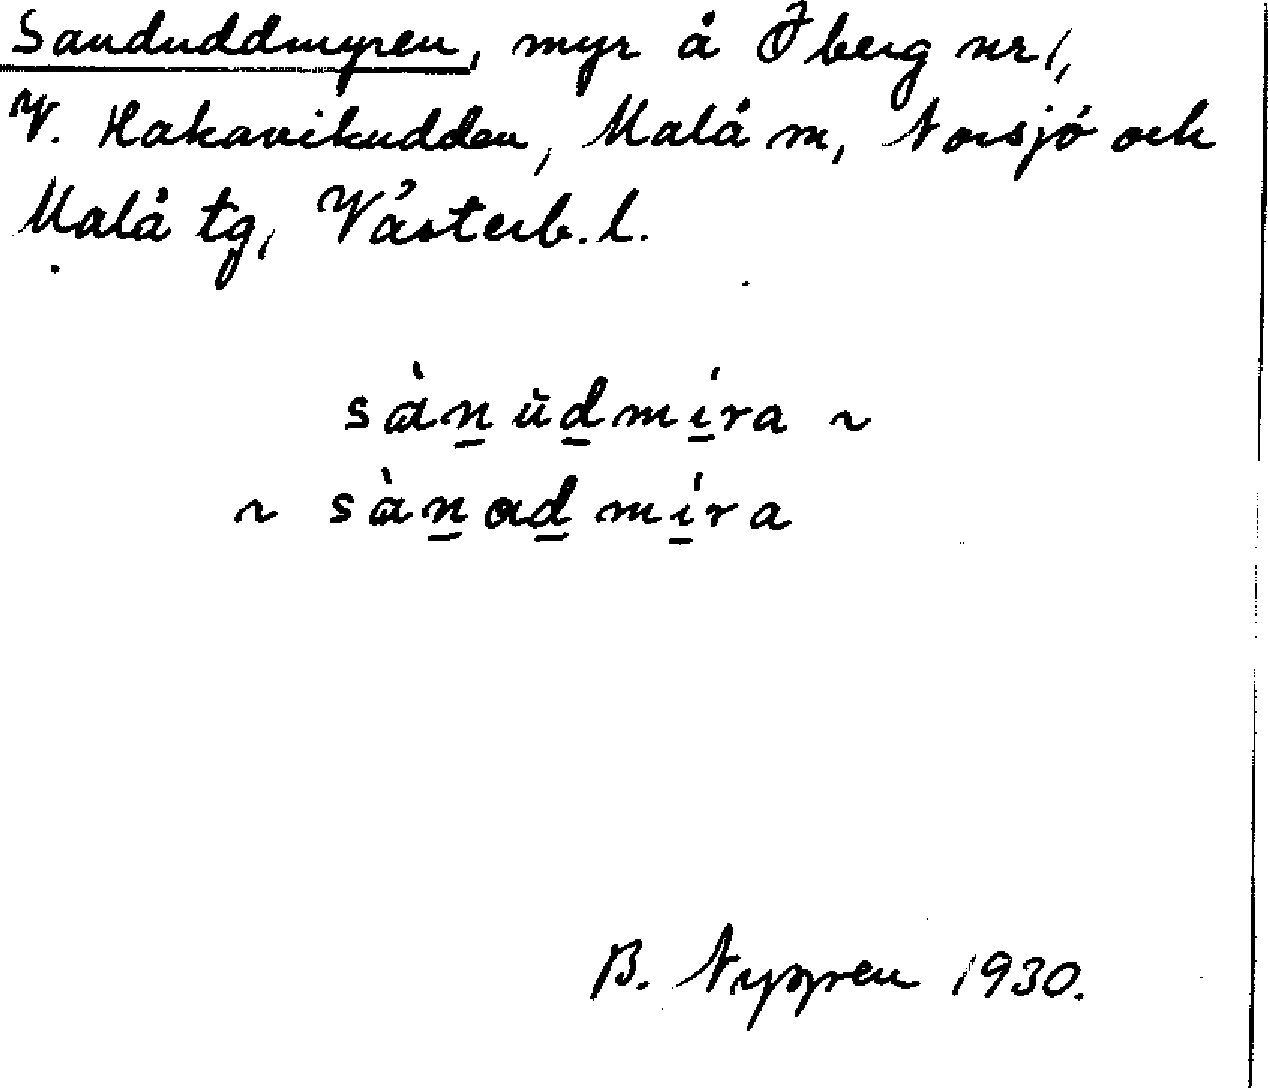 Sanduddmyren, myr å Öberg nr 1,
V. Hakavikudden, Malå sn, Norsjö och
Malå tg, Västerb. l.
sàn̲ŭd̲mí̲ra ~
~ sàn̲ad̲mí̲ra
B. Nygren 1930.